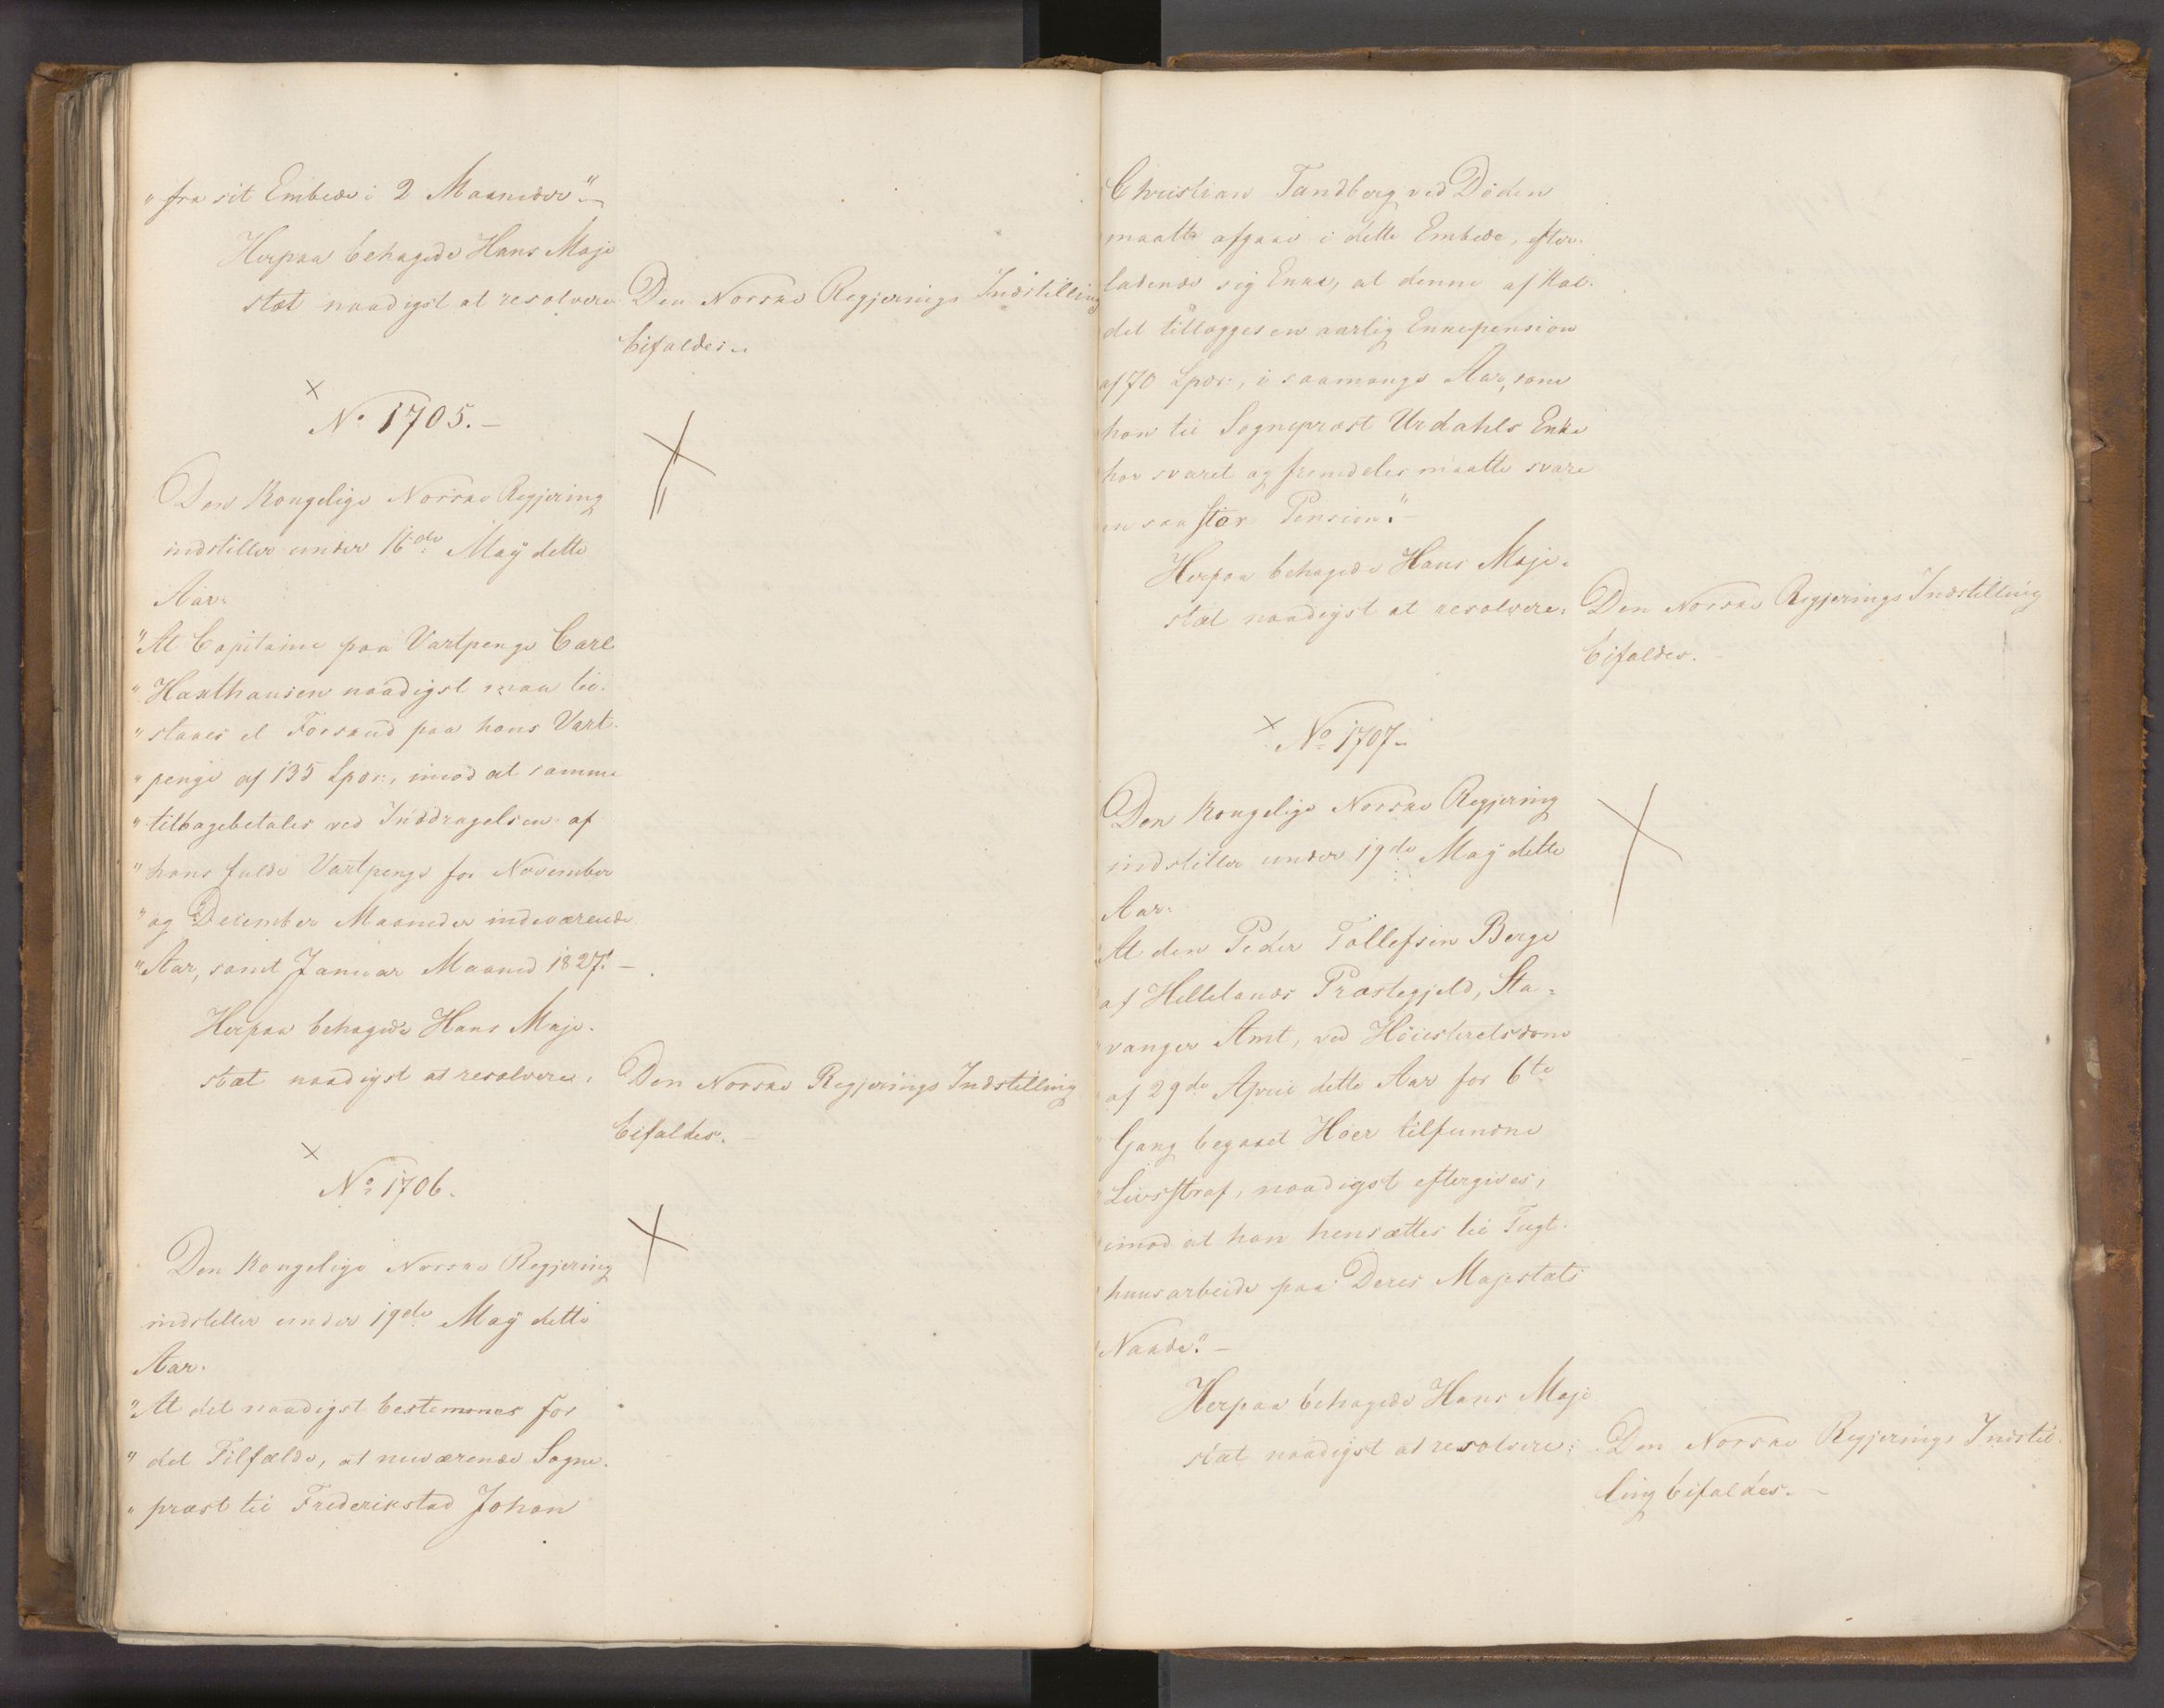 "fra sit Embede i 2 Maaneder."
Herpaa behagede Hans Maje
stæt naadigst at resolvere
Den Norske Regjerings Indstilling
bifaldes.
No 1705.
Den Kongelige Norske Regjering
indstiller under 16de May dette
Aar:
"At Capitaine paa Vartpenge Carl
"Haxthausen naadigst maa til-
"staaes et Forskud paa hans Vart-
"penge af 135 Spdr:, imod at samme
"tilbagebetales ved Inddragelsen af
"hans fulde Vartpenge for November
"og December Maaneder indeværende
"Aar, samt Januar Maaned 1827."
Herpaa behagede Hans Maje-
stæt naadigst at resolvere:
Den Norske Regjerings Indstilling
bifaldes.
No 1706.
Den Kongelige Norske Regjering
indstiller under 19de May dette
Aar:
"At det naadigst bestemmes for
"det Tilfælde, at nuværende Sogne-
"præst til Frederikstad Johan
Christian Tandberg ved Döden
maatte afgaae i dette Embede, efter-
ladende sig Enke, at denne af Kal-
det tillægges en aarlig Enkepension
af 70 Spdr:, i saamange Aar, som
han til Sognepræst Urdahls Enke
har svaret og fremdeles maatte svare
en saa stor Pension."
Herpaa behagede Hans Maje-
stæt naadigst at resolvere:
Den Norske Regjerings Indstilling
bifaldes.
No 1707
Den Kongelige Norske Regjering
indstiller under 19de May dette
Aar:
"At den Peder Tollefsen Berge
"af Hellelands Præstegjeld, Sta-
"vanger Amt, ved Höiesteretsdom
"af 29de April dette Aar for 6te
"Gang begaaet Hoer tilfundne
"Livsstraf, naadigst eftergives,
"imod at han hensættes til Tugt-
"huusarbeide paa Deres Majestæts
"Naade."
Herpaa behagede Hans Maje
stæt naadigst at resolvere:
Den Norske Regjerings Indstil-
ling bifaldes.